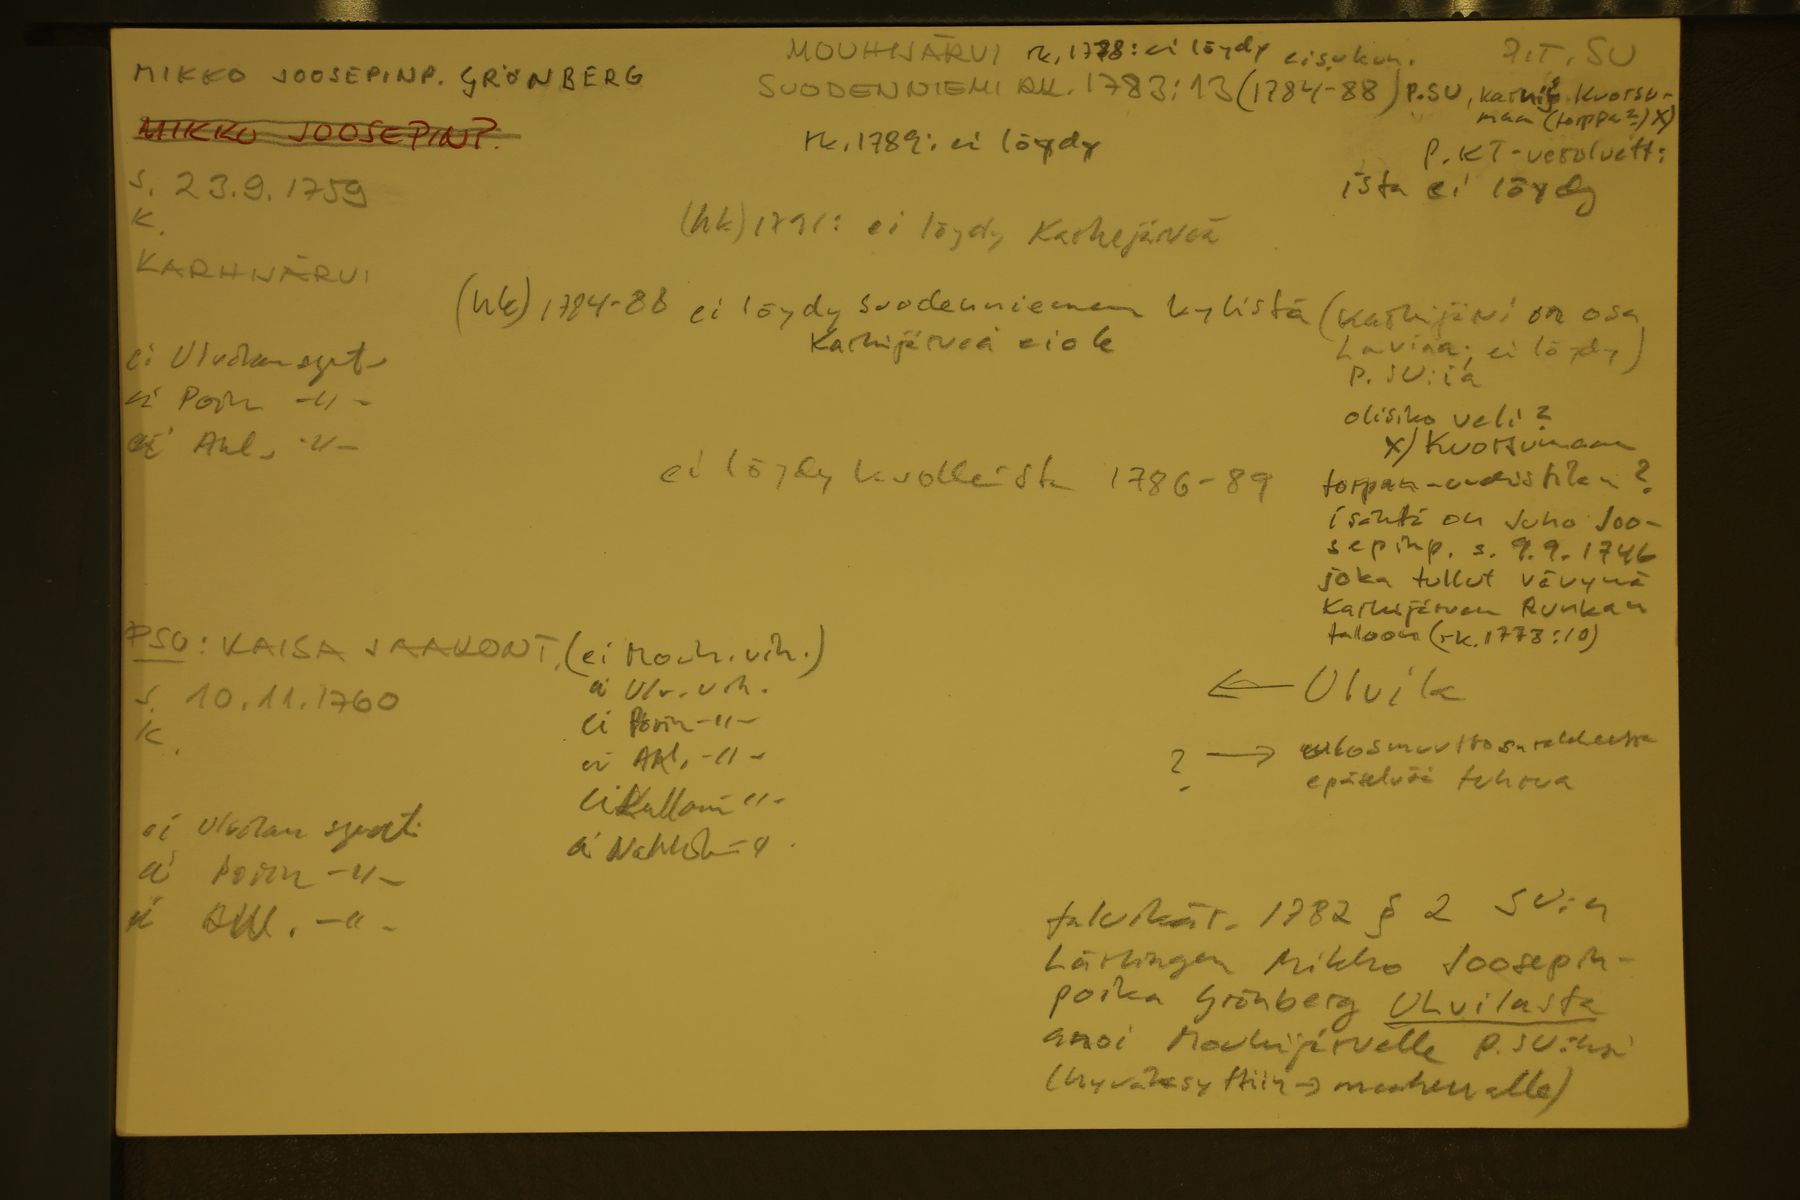 MIKKO JOOSEPINP. GRÖNBERG
MIKKO JOOSEPINP.
s. 23.9.1759
k.
KARHIJÄRVI
ei Ulvilan synt.
ei Porin -"-
ei Ahl. -"-
MOUHIJÄRVI rk. 1778: ei löydy ei sukun.
SUODENNIEMI RK. 1783:13 (1784-88) P.SU, Karhij. Kuorsu-
maa (torppa?) x)
AIT. SU
rk. 1789: ei löydy
P. KT-veroluett:
ista ei löydy
(hk) 1791: ei löydy Karhejärveä
(hk) 1784-88 ei löydy Suodenniemen kylistä (Karhijärvi on osa
Karhijärveä ei ole
Laviaa; ei löydy)
P. SU:ia
olisiko veli?
x) Kuorsumaan
torpan-uudistilan?
isäntä on Juho Joo-
sepinp. s. 9.9.1746
joka tullut vävynä
Karhijärven Runkan
taloon (rk. 1773:10)
ei löydy kuolleista 1786-89
PSU: KAISA JAAKONT. (ei Mouh. vih.)
s. 10.11.1760
k.
ei Ulv. vih.
ei Porin -"-
ei Ahl. -"-
ei Kullaan -"-
ei Nakkila -"-
ei Ulvilan synt.
ei Porin -"-
ei Ahl. -"-
← Ulvik
? → ulosmuuttosarakkeessa
epäselvä tuhruu
talvikär. 1782 § 2 SU:n
Lärlingen Mikko Joosepin-
poika Grönberg Ulvilasta
anoi Mouhijärvelle P.SU:ksi
(hyväksyttiin → maaherralle)